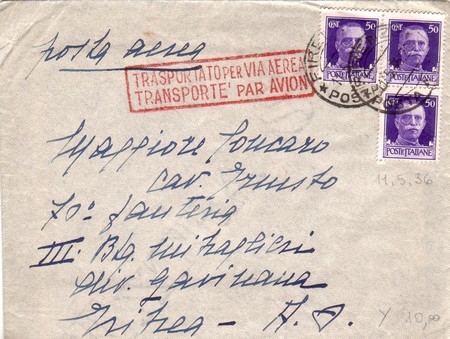 posta aerea
TRASPORTATO PER VIA AEREA
TRANSPORTE' PAR AVION
CENT. 50
CENT. 50
POSTE ITALIANE
POSTE ITALIANE
50
POSTE ITALIANE
FIRE
Maggiore Loncaro
Cav. Ernesto
70° fanteria
III. Btg. mitraglieri
div. gavinana
Eritrea - A. O.
11.5.36
10,00